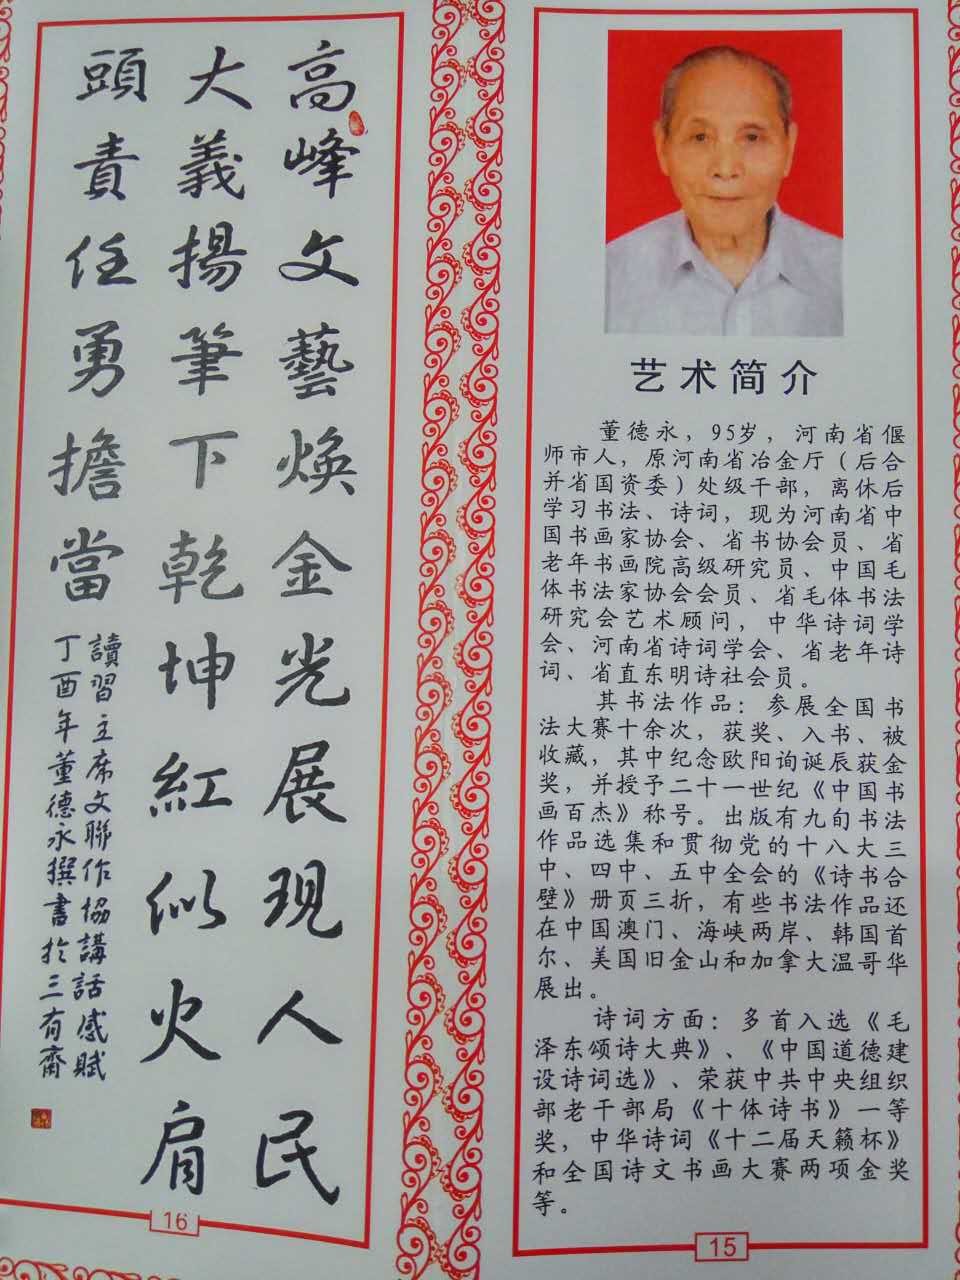 高峰文藝煥金光展現人民
大義揚筆下乾坤紅似火肩
頭責任勇擔當
讀習主席文聯作協講話感賦
丁酉年董德永撰書於三有齋
16
艺术简介
董德永，95岁，河南省偃
师市人，原河南省冶金厅（后合
并省国资委）处级干部，离休后
学习书法、诗词，现为河南省中
国书画家协会、省书协会员、省
老年书画院高级研究员、中国毛
体书法家协会会员、省毛体书法
研究会艺术顾问，中华诗词学
会、河南省诗词学会、省老年诗
词、省直东明诗社会员。
其书法作品：参展全国书
法大赛十余次，获奖、入书、被
收藏，其中纪念欧阳询诞辰获金
奖，并授予二十一世纪《中国书
画百杰》称号。出版有九旬书法
作品选集和贯彻党的十八大三
中、四中、五中全会的《诗书合
壁》册页三折，有些书法作品还
在中国澳门、海峡两岸、韩国首
尔、美国旧金山和加拿大温哥华
展出。
诗词方面：多首入选《毛
泽东颂诗大典》、《中国道德建
设诗词选》、荣获中共中央组织
部老干部局《十体诗书》一等
奖，中华诗词《十二届天籁杯》
和全国诗文书画大赛两项金奖
等。
15